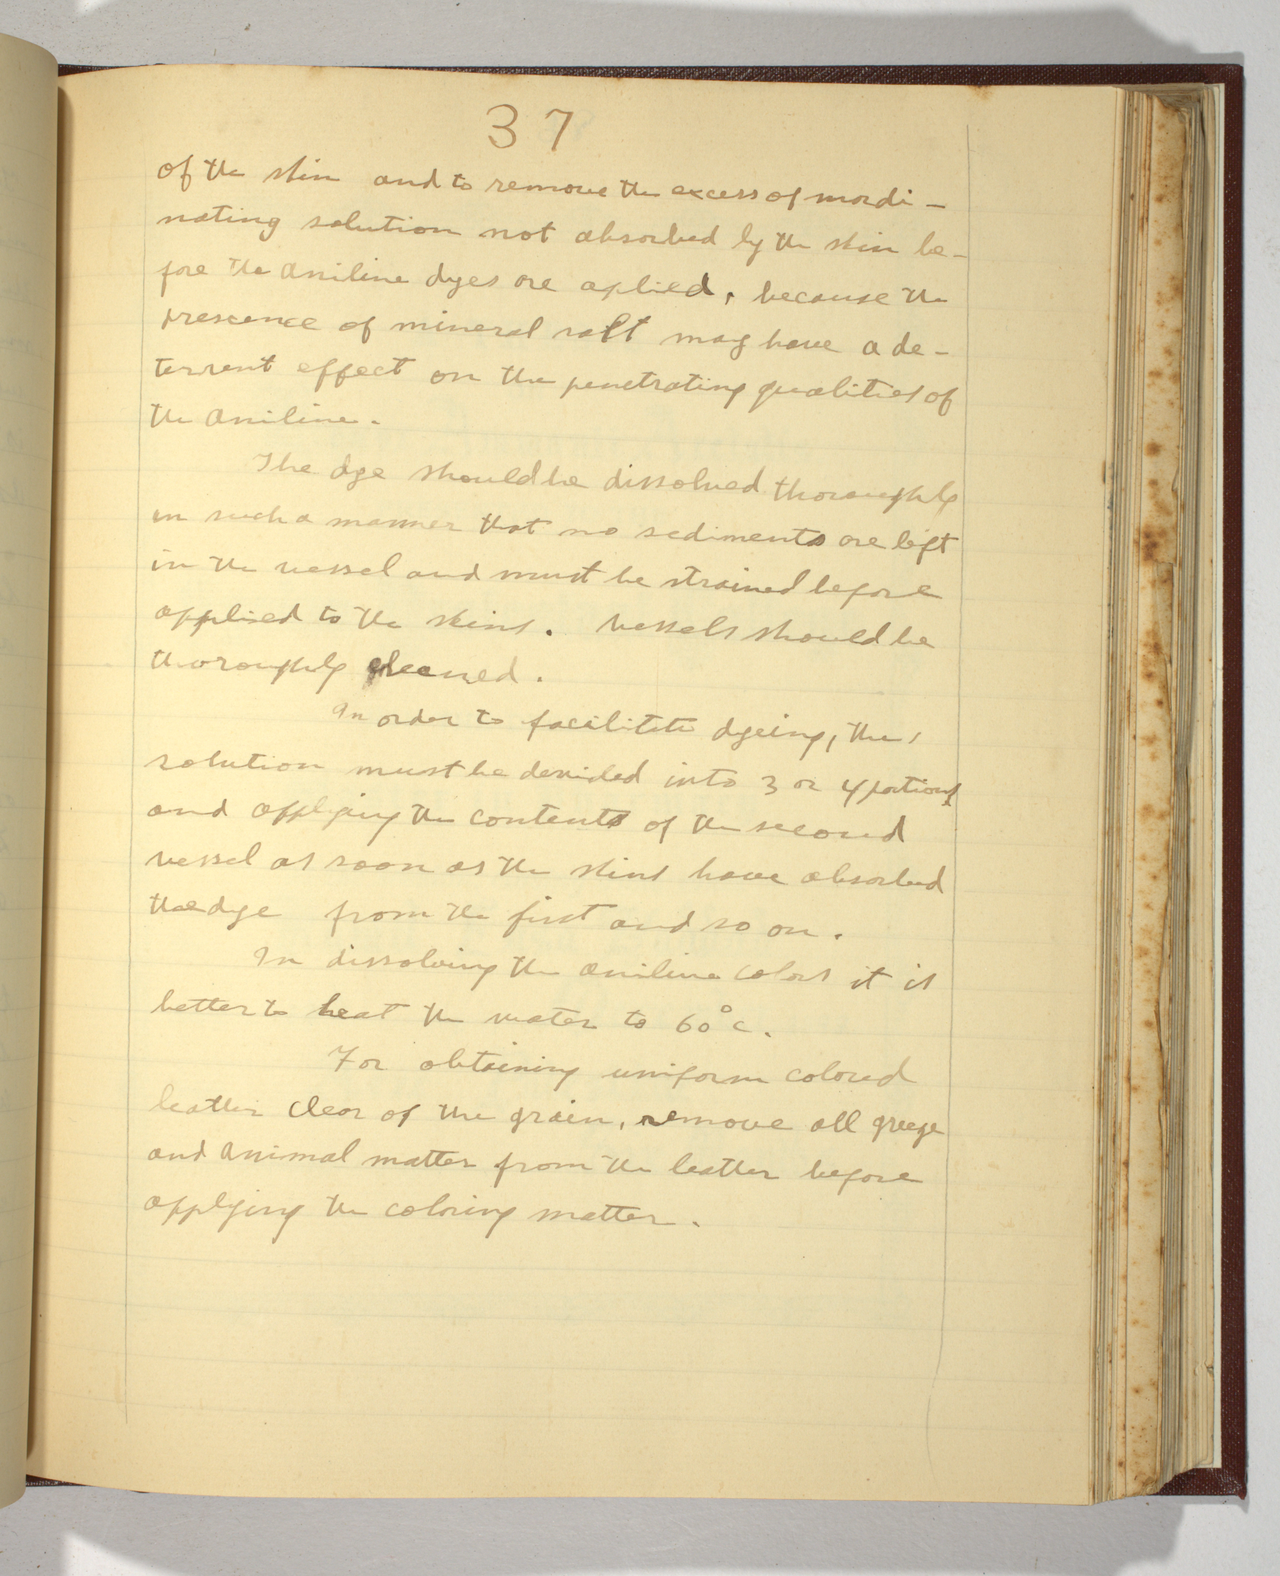 37
of the skin and to remove the excess of mordi-
nating solution not absorbed by the skin be-
fore the aniline dyes are aplied, because the
prescence of mineral salt may have a de-
terrent effect on the penetrating qualities of
the aniline.
The dye should be dissolved thoroughly
in such a manner that no sediments are left
in the vessel and must be strained before
applied to the skins. Vessels should be
thoroughly cleaned.
In order to facilitate dyeing, the
solution must be devided into 3 or 4 portions
and applying the contents of the second
vessel as soon as the skins have absorbed
the dye from the first and so on.
In dissolving the aniline colors it is
better to heat the water to 60°c.
For obtaining uniform colored
leather clear of the grain, remove all grege
and animal matter from the leather before
applying the coloring matter.